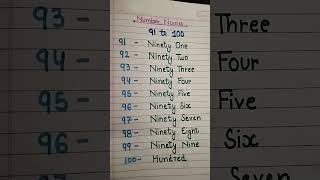 Number Names
91 to 100
91 - Ninety One
92 - Ninety Two
93 - Ninety Three
94 - Ninety Four
95 - Ninety Five
96 - Ninety Six
97 - Ninety Seven
98 - Ninety Eight
99 - Ninety Nine
100- Hundred
93 -
94 -
95 -
96 -
Three
Four
Five
Six